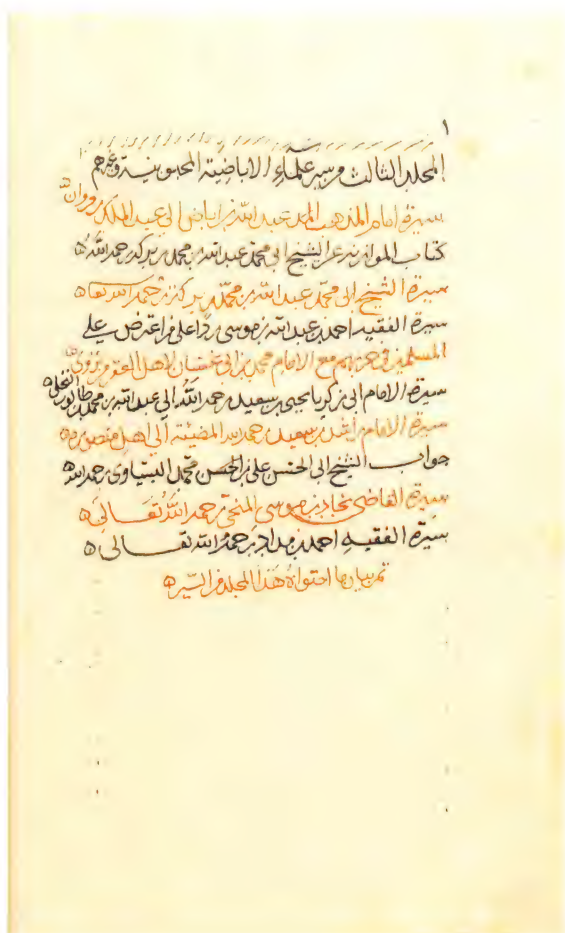 ١
المجلد الثالث من سير علماء الاباضية المحبوبية وغيرهم
سيرة امام المذهب المرتضى عبد الله بن اباض الى عبد الملك بن مروان
كتاب الموازنة عن الشيخ ابي محمد عبد الله بن محمد بن بركة رحمه الله
سيرة الشيخ ابي محمد عبد الله بن محمد بن بركة رحمه الله تعالى
سيرة الفقيه احمد بن عبد الله بن موسى ردا على من اعترض على
المسلمين في حربهم مع الامام محمد بن ابي غسان لاهل العقر من نزوى
سيرة الامام ابي زكريا يحيى بن سعيد رحمه الله الى عبد الله بن محمد بن طالوت النخلي
سيرة الامام راشد بن سعيد رحمه الله المضيئة الى اهل منصورة
جواب الشيخ ابي الحسن علي بن الحسن محمد البسياوي رحمه الله
سيرة القاضي نجاد بن موسى المنحي رحمه الله تعالى
سيرة الفقيه احمد بن مداد رحمه الله تعالى
تم بيان ما احتواه هذا المجلد من السير